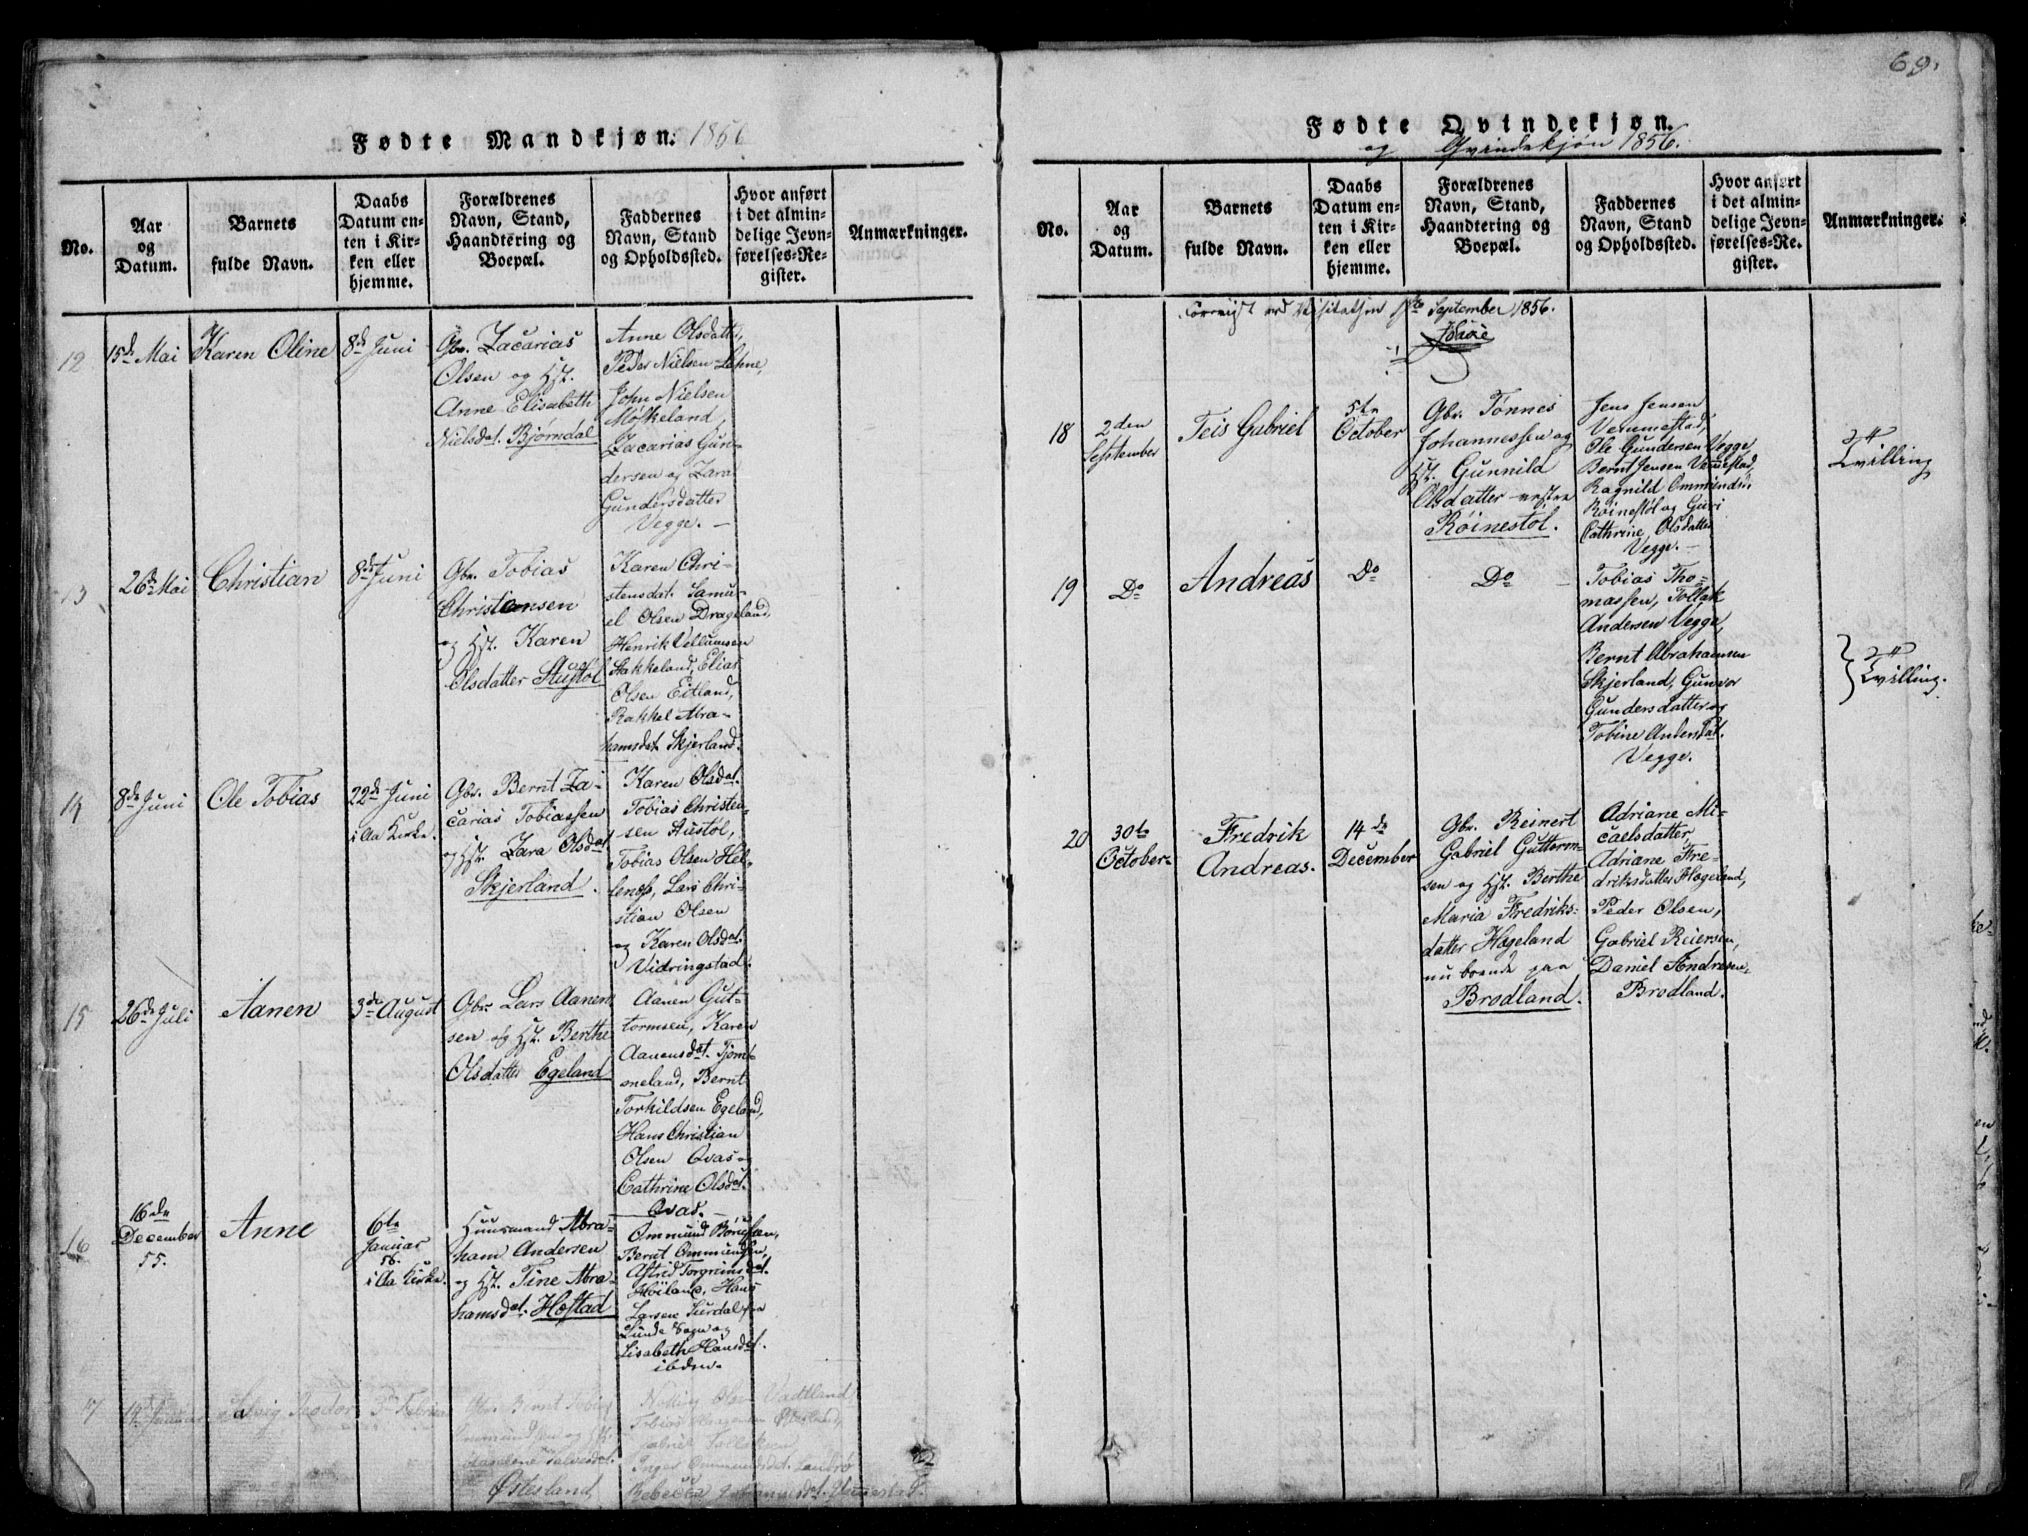 69.
Fødte Mandkjøn. 1856
No.
Aar og Datum.
Barnets fulde Navn.
Daabs Datum enten i Kirken eller hjemme.
Forældrenes Navn, Stand, Haandtering og Boepæl.
Faddernes Navn, Stand og Opholdssted.
Hvor anført i det almindelige Jevnførelses-Register.
Anmærkninger.
12
15de Mai
Karen Oline
8de Juni
Gbr. Zacarias
Olsen og Hst.
Anne Elisabeth
Nielsdat. Bjørndal
Anne Olsdatter,
Peder Nielsen Lehne,
John Nielsen
Møskeland,
Zacarias Gun-
dersen og Zara
Gundersdatter
Vegge. —
13
26de Mai
Christian
8de Juni
Gbr. Tobias
Christensen
og Hst. Karen
Olsdatter Stustøl
Karen Chri-
stensdat. Samu-
el Olsen Drageland,
Henrik Vellumsen
Stakkeland, Elias
Olsen Eitland,
Rakkel Abra-
hamsdat. Skjerland.
14
8de Juni
Ole Tobias
22de Juni
i Aa Kirke.
Gbr. Bernt Za-
carias Tobiassen
og Hst. Zara Olsdat.
Skjerland.
Karen Olsdat.
Tobias Christen-
sen
Tobias Olsen Hel-
Lars Chri-
stian Olsen
og Karen Olsdat.
Vidringstad.
15
26de Juli
Aanen
3de August
Gbr. Lars Aanen-
sen og Hst. Berthe
Olsdatter Egeland
Aanen Gut-
tormsen, Karen
Aanensdat. Tjom-
Bernt
Torkildsen Egeland,
Hans Christian
Olsen Qvas og
Cathrine Olsdat.
Qvas. —
16
16de
December
55.
Anne
6te
Januar
56.
i Aa Kirke.
Huusmand Abra-
ham Andersen
og Hst. Tine Abra-
hamsdat. Høstad
Ommund
Bernt Ommundsen,
Astrid Torgrimsdat.
Høiland, Hans
Larsen
Lunde Sogn og
Lisabeth Hansdat.
ibdm.
17
Januar
Gbr. Bernt Tobias
Ommundsen og Hst.
Østesland
Olsen Vadtland
Tobias
Gabriel
Inger Ommundsdat.
Rebecca
Fødte Qvindekjøn.
og Qvindekjøn 1856.
No.
Aar og Datum.
Barnets fulde Navn.
Daabs Datum enten i Kirken eller hjemme.
Forældrenes Navn, Stand, Haandtering og Boepæl.
Faddernes Navn, Stand og Opholdssted.
Hvor anført i det almindelige Jevnførelses-Register.
Anmærkninger.
Foreviist ved Visitatsen September 1856.
18
2den
September
Teis Gabriel
5te
October
Gbr. Tønnes
Johannessen og
Hst. Gunnild
Olsdatter vestre
Røinestøl.
Jens Jensen
Vemmestad,
Ole Gundersen Vegge,
Bernt Jensen Vemestad,
Ragnild Ommundsd.
Røinestøl og Guri
Cathrine Olsdatter
Vegge. —
Tvilling
19
Do
Andreas
Do
Do
Tobias Tho-
massen, Tollak
Andersen Vegge,
Bernt Abrahamsen
Skjerland, Gunvor
Gundersdatter og
Tobine Andersdat.
Vegge.
Tvilling.
20
30te
October.
Fredrik
Andreas.
14de
December
Gbr. Reinert
Gabriel Guttorm-
sen og Hst. Berthe
Maria Fredriks-
datter Hægeland
nu boende paa
Brodland.
Adriane Mi-
caelsdatter,
Adriane Fre-
driksdatter Hægeland,
Peder Olsen,
Gabriel Reiersen,
Daniel Andresen
Brodland.